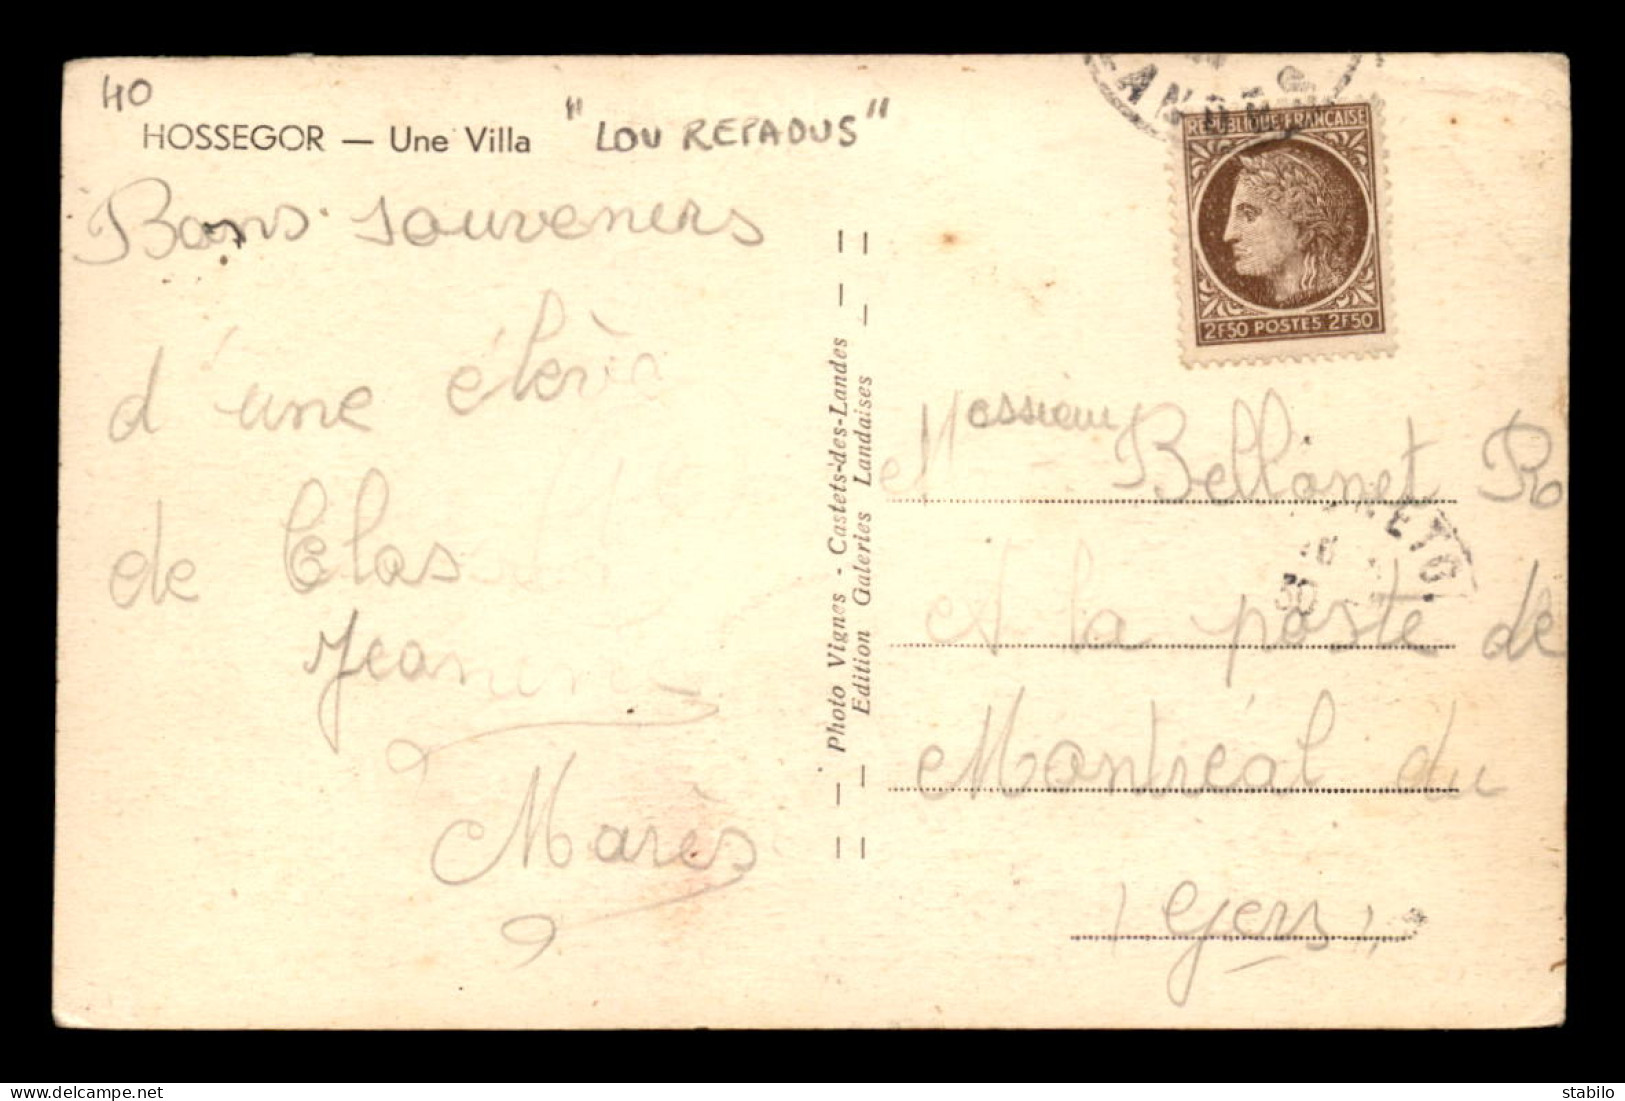 40
HOSSEGOR — Une Villa "LOU REPAOUS"
Bons souveners
d'une élève
de Clas
Jeanine
Marès
Photo Vignes - Castets-des-Landes
Edition Galeries Landaises
REPUBLIQUE FRANÇAISE
2F50 POSTES 2F50
Messieur Bellanet R
A la poste de
Montréal du
Gers
30
stabilo